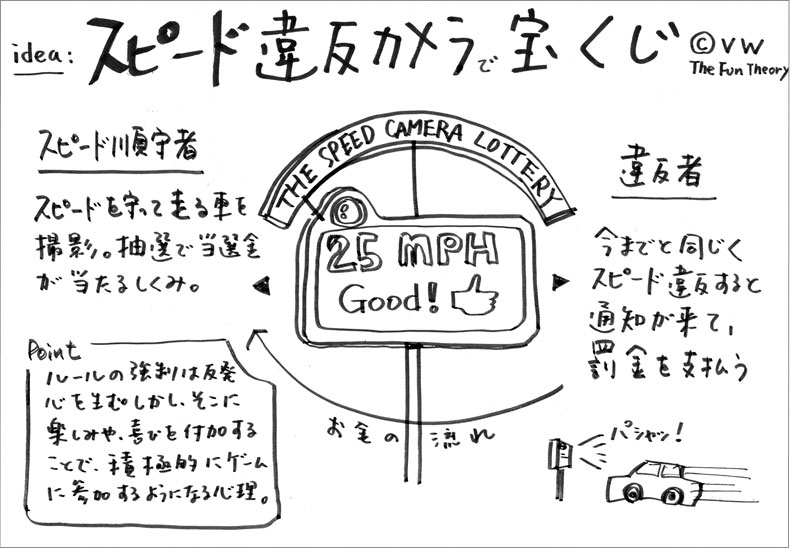 idea: スピード違反カメラで宝くじ
©VW
The Fun Theory
スピード順守者
スピードを守って走る車を
撮影。抽選で当選金
が当たるしくみ。
THE SPEED CAMERA LOTTERY
25 MPH
Good!
違反者
今までと同じく
スピード違反すると
通知が来て、
罰金を支払う
Point
ルールの強制は反発
心を生むしかし、そこに
楽しみや、喜びを付加する
ことで、積極的にゲーム
に参加するようになる心理。
お金の流れ
パシャッ!